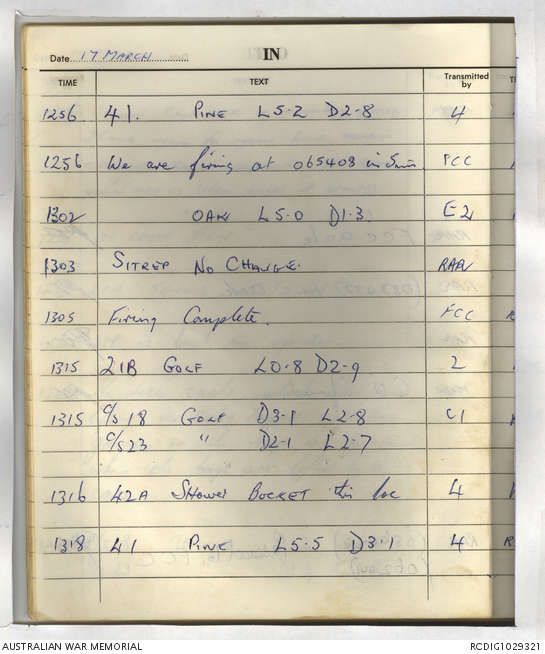 Date 17 MARCH IN
TIME TEXT Transmitted by
1256 41. PINE L5-2 D2-8 4
1256 We are firing at 065403 in 5 min. FCC
1302 OAK L5.0 D1.3 E2
1303 SITREP NO CHANGE. RAR
1305 Firing Complete. FCC
1315 21B GOLF L0.8 D2-9 2
1315 C/S 18 GOLF D3-1 L2-8 C1
C/S 23 " D2-1 L2-7
1316 42A Shower BUCKET this loc 4
1318 41 PINE L5.5 D3.1 4
AUSTRALIAN WAR MEMORIAL RCDIG1029321